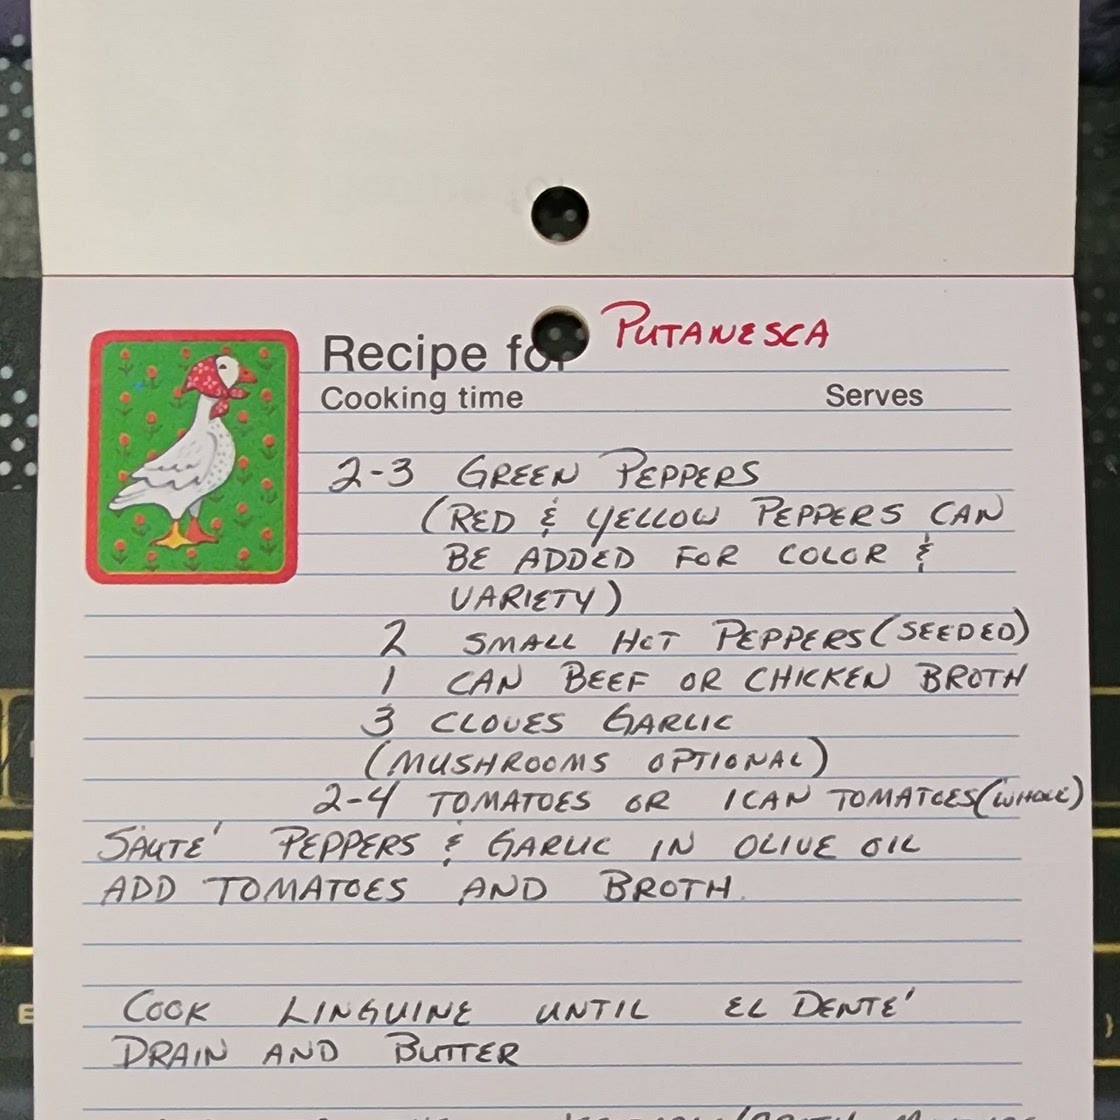 Recipe for PUTANESCA
Cooking time Serves
2-3 GREEN PEPPERS
(RED & YELLOW PEPPERS CAN
BE ADDED FOR COLOR &
VARIETY)
2 SMALL HOT PEPPERS (SEEDED)
1 CAN BEEF OR CHICKEN BROTH
3 CLOVES GARLIC
(MUSHROOMS OPTIONAL)
2-4 TOMATOES OR 1 CAN TOMATOES (WHOLE)
SAUTE' PEPPERS & GARLIC IN OLIVE OIL
ADD TOMATOES AND BROTH.
COOK LINGUINE UNTIL EL DENTE'
DRAIN AND BUTTER